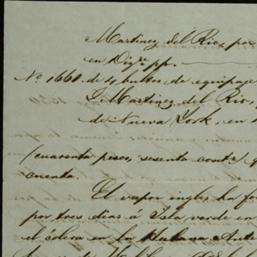 Martinez del Rio, por
en Digre pp.
No. 1660 de 4 bultos de equipage
J. Martinez del Rio,
de Nueva York, en
(cuarenta pesos, sesenta cents)
cuenta.
El vapor ingles ha
por tres dias a Isla verde en
el cólera en la Habana. Ante